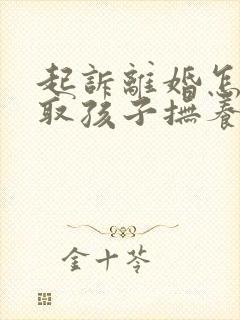 起訴離婚怎
取孩子撫養
金十苓